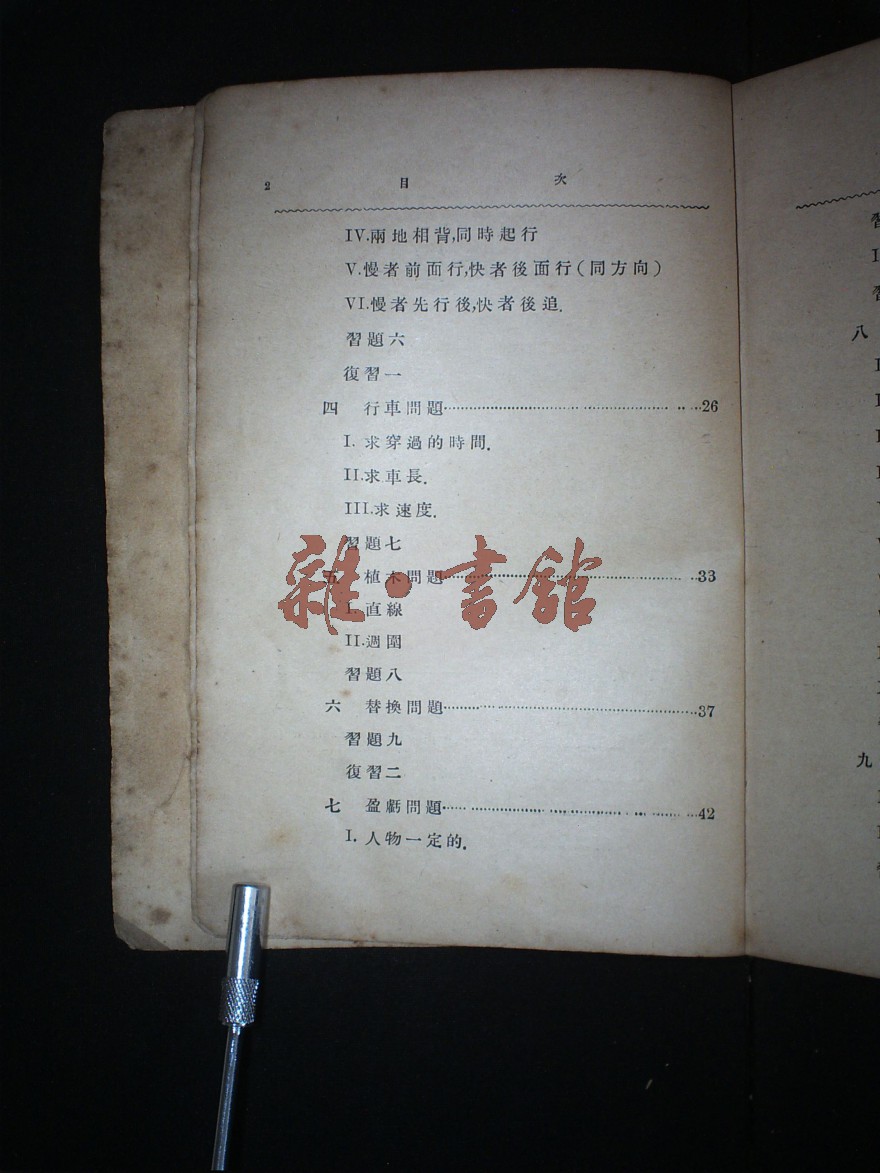 2 目 次
IV.兩地相背,同時起行
V.慢者前面行,快者後面行(同方向)
VI.慢者先行後,快者後追.
習題六
復習一
四 行車問題……26
I. 求穿過的時間.
II.求車長.
III.求速度.
習題七
五 植木問題……33
I. 直線
II.週圍
習題八
六 替換問題……37
習題九
復習二
七 盈虧問題……42
I. 人物一定的.
雜·書館
八
九